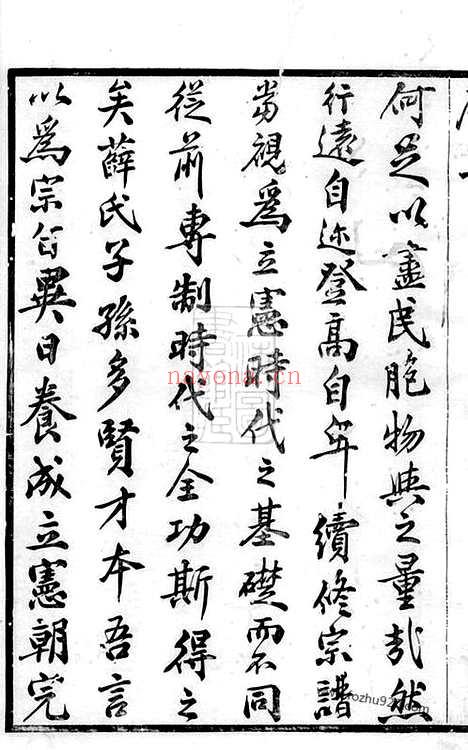 何足以盡民胞物與之量哉然
行遠自迩登高自卑續修宗譜
當視爲立憲時代之基礎而不同
從前專制時代之全功斯得之
矣薛氏子孫多賢才本吾言
以爲宗旨異日養成立憲朝完
nayona.cn